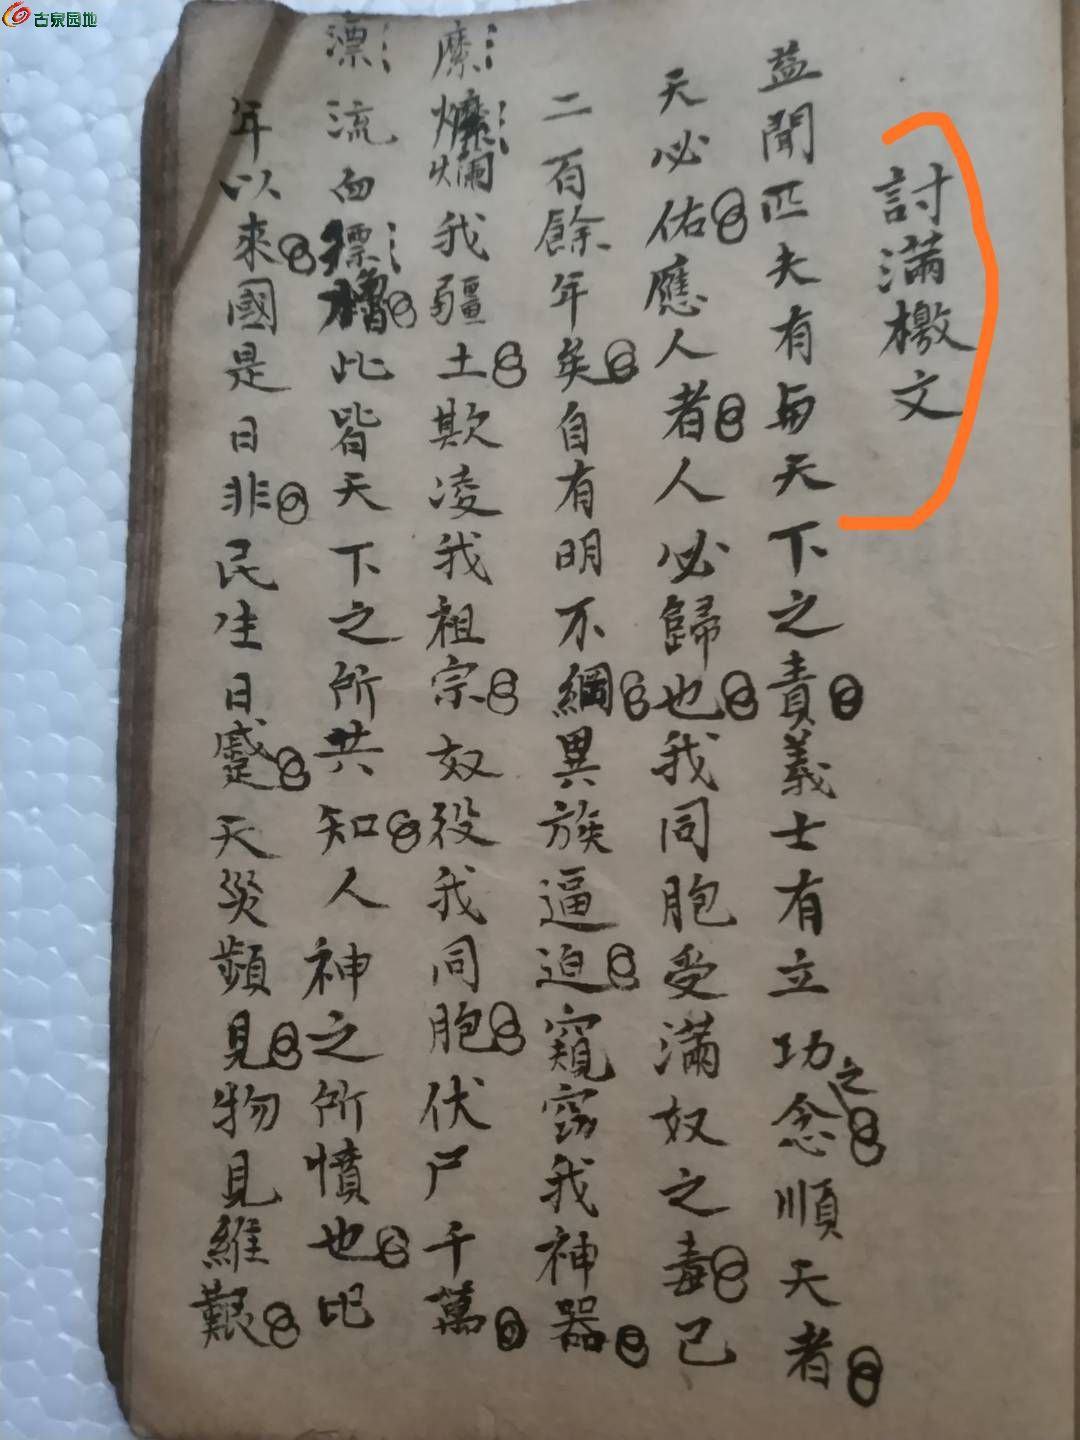 古泉园地
討滿檄文
益聞匹夫有與天下之責義士有立功之念順天者
天必佑應人者人必歸也我同胞受滿奴之毒已
二百餘年矣自有明不綱異族逼迫窺竊我神器
糜爛我疆土欺凌我祖宗奴役我同胞伏尸千萬
漂流血漂櫓此皆天下之所共知人神之所憤也比
年以來國是日非民生日蹙天災頻見物見維艱